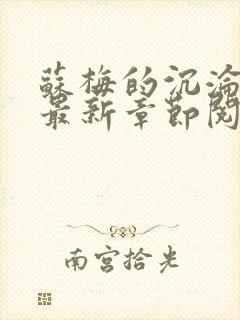 蘇梅的沉淪
最新章節閱
南宮拾光